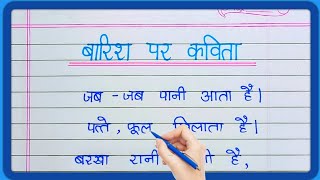 बारिश पर कविता
जब - जब पानी आता है।
पत्ते, फूल है।
बरखा रानी है,